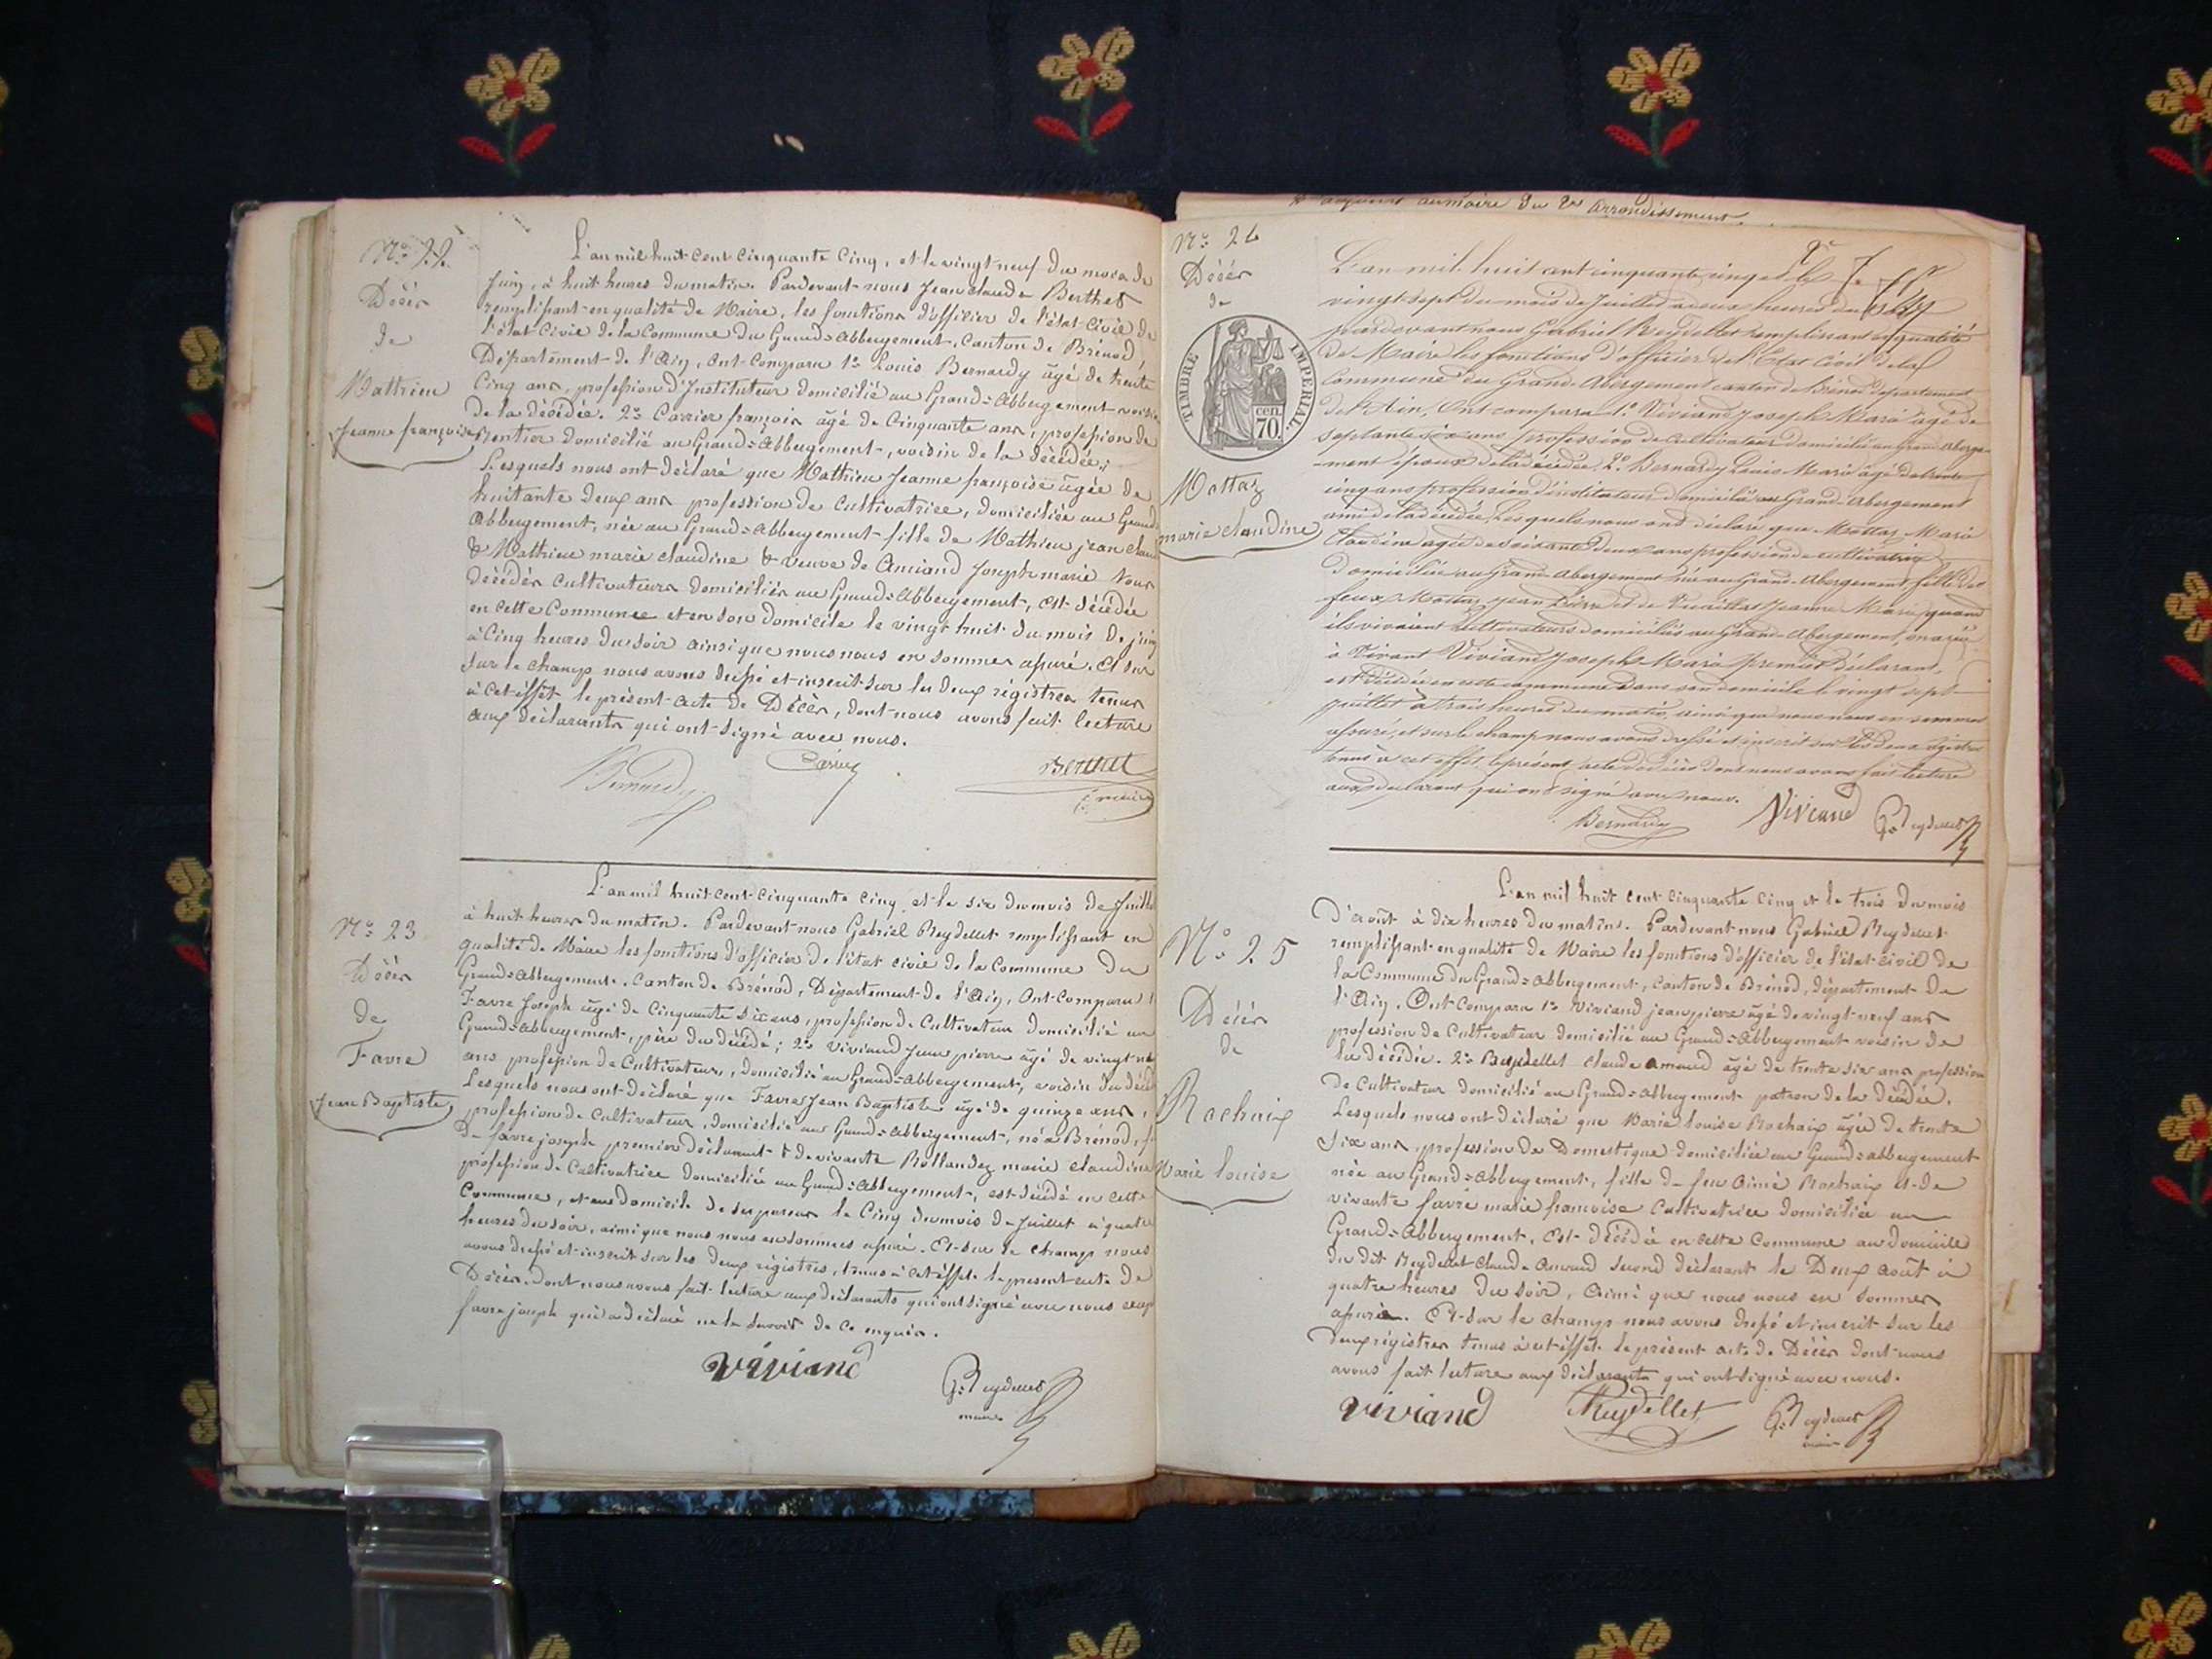 N.º 22.
Décès
de
Mathieu
Jeanne françoise
L'an mil huit cent cinquante cinq, et le vingt neuf du mois de
Juin, à huit heures du matin. Pardevant nous Jean Claude Berthet
remplissant en qualité de Maire, les fonctions d'officier de l'état civil de
l'état Civil de la Commune du Grand=Abbergement, Canton de Brénod,
Département de l'Ain, Ont Comparu 1º Louis Bernardy âgé de trente
Cinq ans, profession d'Instituteur domicilié au Grand=Abbergement voisin
de la décédée. 2º Carrier françois âgé de Cinquante ans, profession de
Rentier domicilié au Grand=Abbergement, voisin de la décédée;
Lesquels nous ont déclaré que Mathieu Jeanne françoise âgée de
huitante deux ans profession de Cultivatrice, domiciliée au Grand
Abbergement, née au Grand=Abbergement fille de Mathieu jean Clau
& Mathieu marie claudine & veuve de Amiand Joseph marie tous
décédés Cultivateurs domiciliés au Grand=Abbergement, est décédée
en cette Commune et en son domicile le vingt huit du mois de juin
à Cinq heures du soir ainsi que nous nous en sommes assuré. Et sur
sur le champ nous avons dressé et inscrit sur les deux régistres tenus
à cet éffet le présent acte de Décès, dont nous avons fait lecture
aux déclarants qui ont signé avec nous.
Bernardy Carrier Berthet
maire
N.º 23
Décès
de
Favre
Jean Baptiste
L'an mil huit cent cinquante cinq et le six du mois de Juillet
à huit heures du matin. Pardevant nous Gabriel Reydellet remplissant en
qualité de Maire les fonctions d'officier de l'état civil de la Commune du
Grand=Abbergement, Canton de Brénod, Département de l'Ain, Ont Comparu 1
Favre Joseph âgé de Cinquante six ans, profession de Cultivateur domicilié au
Grand=Abbergement, père du décédé; 2º Viviand Jean pierre âgé de vingt ne
ans profession de Cultivateur, domicilié au Grand=Abbergement, voisin du décé
Lesquels nous ont déclaré que Favre Jean Baptiste âgé de quinze ans,
profession de Cultivateur, domicilié au Grand=Abbergement, né à Brénod,
De favre joseph premier déclarant & de vivante Rollandez marie claudine
profession de Cultivatrice domiciliée au Grand=Abbergement, est décédé en cette
Commune, et au domicile de ses parens le Cinq du mois de Juillet à quatre
heures du soir, ainsi que nous nous en sommes assuré. Et sur le champ nous
avons dressé et inscrit sur les deux régistres, tenus à cet éffet le présent acte de
Décès, dont nous avons fait lecture aux déclarants qui ont signé avec nous excep
favre joseph qui a déclaré ne le savoir de ce enquis.
Viviand G. Reydellet
maire
au maire du 2e arrondissement
N.º 24
Décès
de
TIMBRE IMPERIAL.
70 cen.
Mottaz
marie claudine
L'an mil huit cent cinquante cinq et le
vingt sept du mois de Juillet à deux heures du
pardevant nous Gabriel Reydellet remplissant en qualité
de Maire les fonctions d'officier de l'Etat Civil de la
Commune du Grand-Abergement canton de Brénod département
de l'Ain, Ont comparu 1.º Viviand Joseph Marie âgé de
septante six ans profession de cultivateur domicilié au Grand Aberge-
-ment époux de la décédée, 2.º Bernardy Louis Marie âgé de trente
cinq ans profession d'instituteur domicilié au Grand-Abergement
ami de la décédée, Lesquels nous ont déclaré que Mottaz Marie
Claudine agée de soixante deux ans profession de cultivatrice
Domiciliée au Grand Abergement née au Grand-Abergement, fille des
feux Mottaz Jean Pierre et de Jeanne Marie, quand
ils vivaient cultivateurs domiciliés au Grand-Abergement, mariée
à vivant Viviand Joseph Marie premier déclarant,
est décédée en cette commune dans son domicile le vingt sept
juillet à trois heures du matin, ainsi que nous nous en sommes
assuré, et sur le champ nous avons dressé et inscrit sur les deux régistres
tenus à cet effet le présent acte de décès dont nous avons fait lecture
aux déclarant qui ont signé avec nous.
Bernardy Viviand G. Reydellet
N.º 25
Décès
de
Rochaix
Marie louise
L'an mil huit cent cinquante cinq et le trois du mois
d'août à dix heures du matin. Pardevant nous Gabriel Reydellet
remplissant en qualité de Maire les fonctions d'officier de l'état civil de
la Commune du Grand=Abbergement, Canton de Brénod, département de
l'Ain, Ont Comparu 1º Viviand jean pierre âgé de vingt neuf ans
profession de Cultivateur domicilié au Grand=Abbergement voisin de
la décédée. 2º Reydellet claude amand âgé de trente six ans profession
de Cultivateur domicilié au Grand=Abbergement patron de la décédée.
Lesquels nous ont déclaré que Marie louise Rochaix âgée de trente
six ans, profession de Domestique domiciliée au Grand=abbergement
née au Grand=Abbergement, fille de feu Aimé Rochaix et de
vivante favre marie françoise Cultivatrice domiciliée au
Grand=Abbergement, est décédée en cette Commune au domicile
du dit Reydellet Claude Amand second déclarant le Deux août à
quatre heures du soir, ainsi que nous nous en sommes
assuré. Et sur le champ nous avons dressé et inscrit sur les
deux régistres tenus à cet éffet le présent acte de Décès dont nous
avons fait lecture aux déclarants qui ont signé avec nous.
Viviand Reydellet G. Reydellet
maire